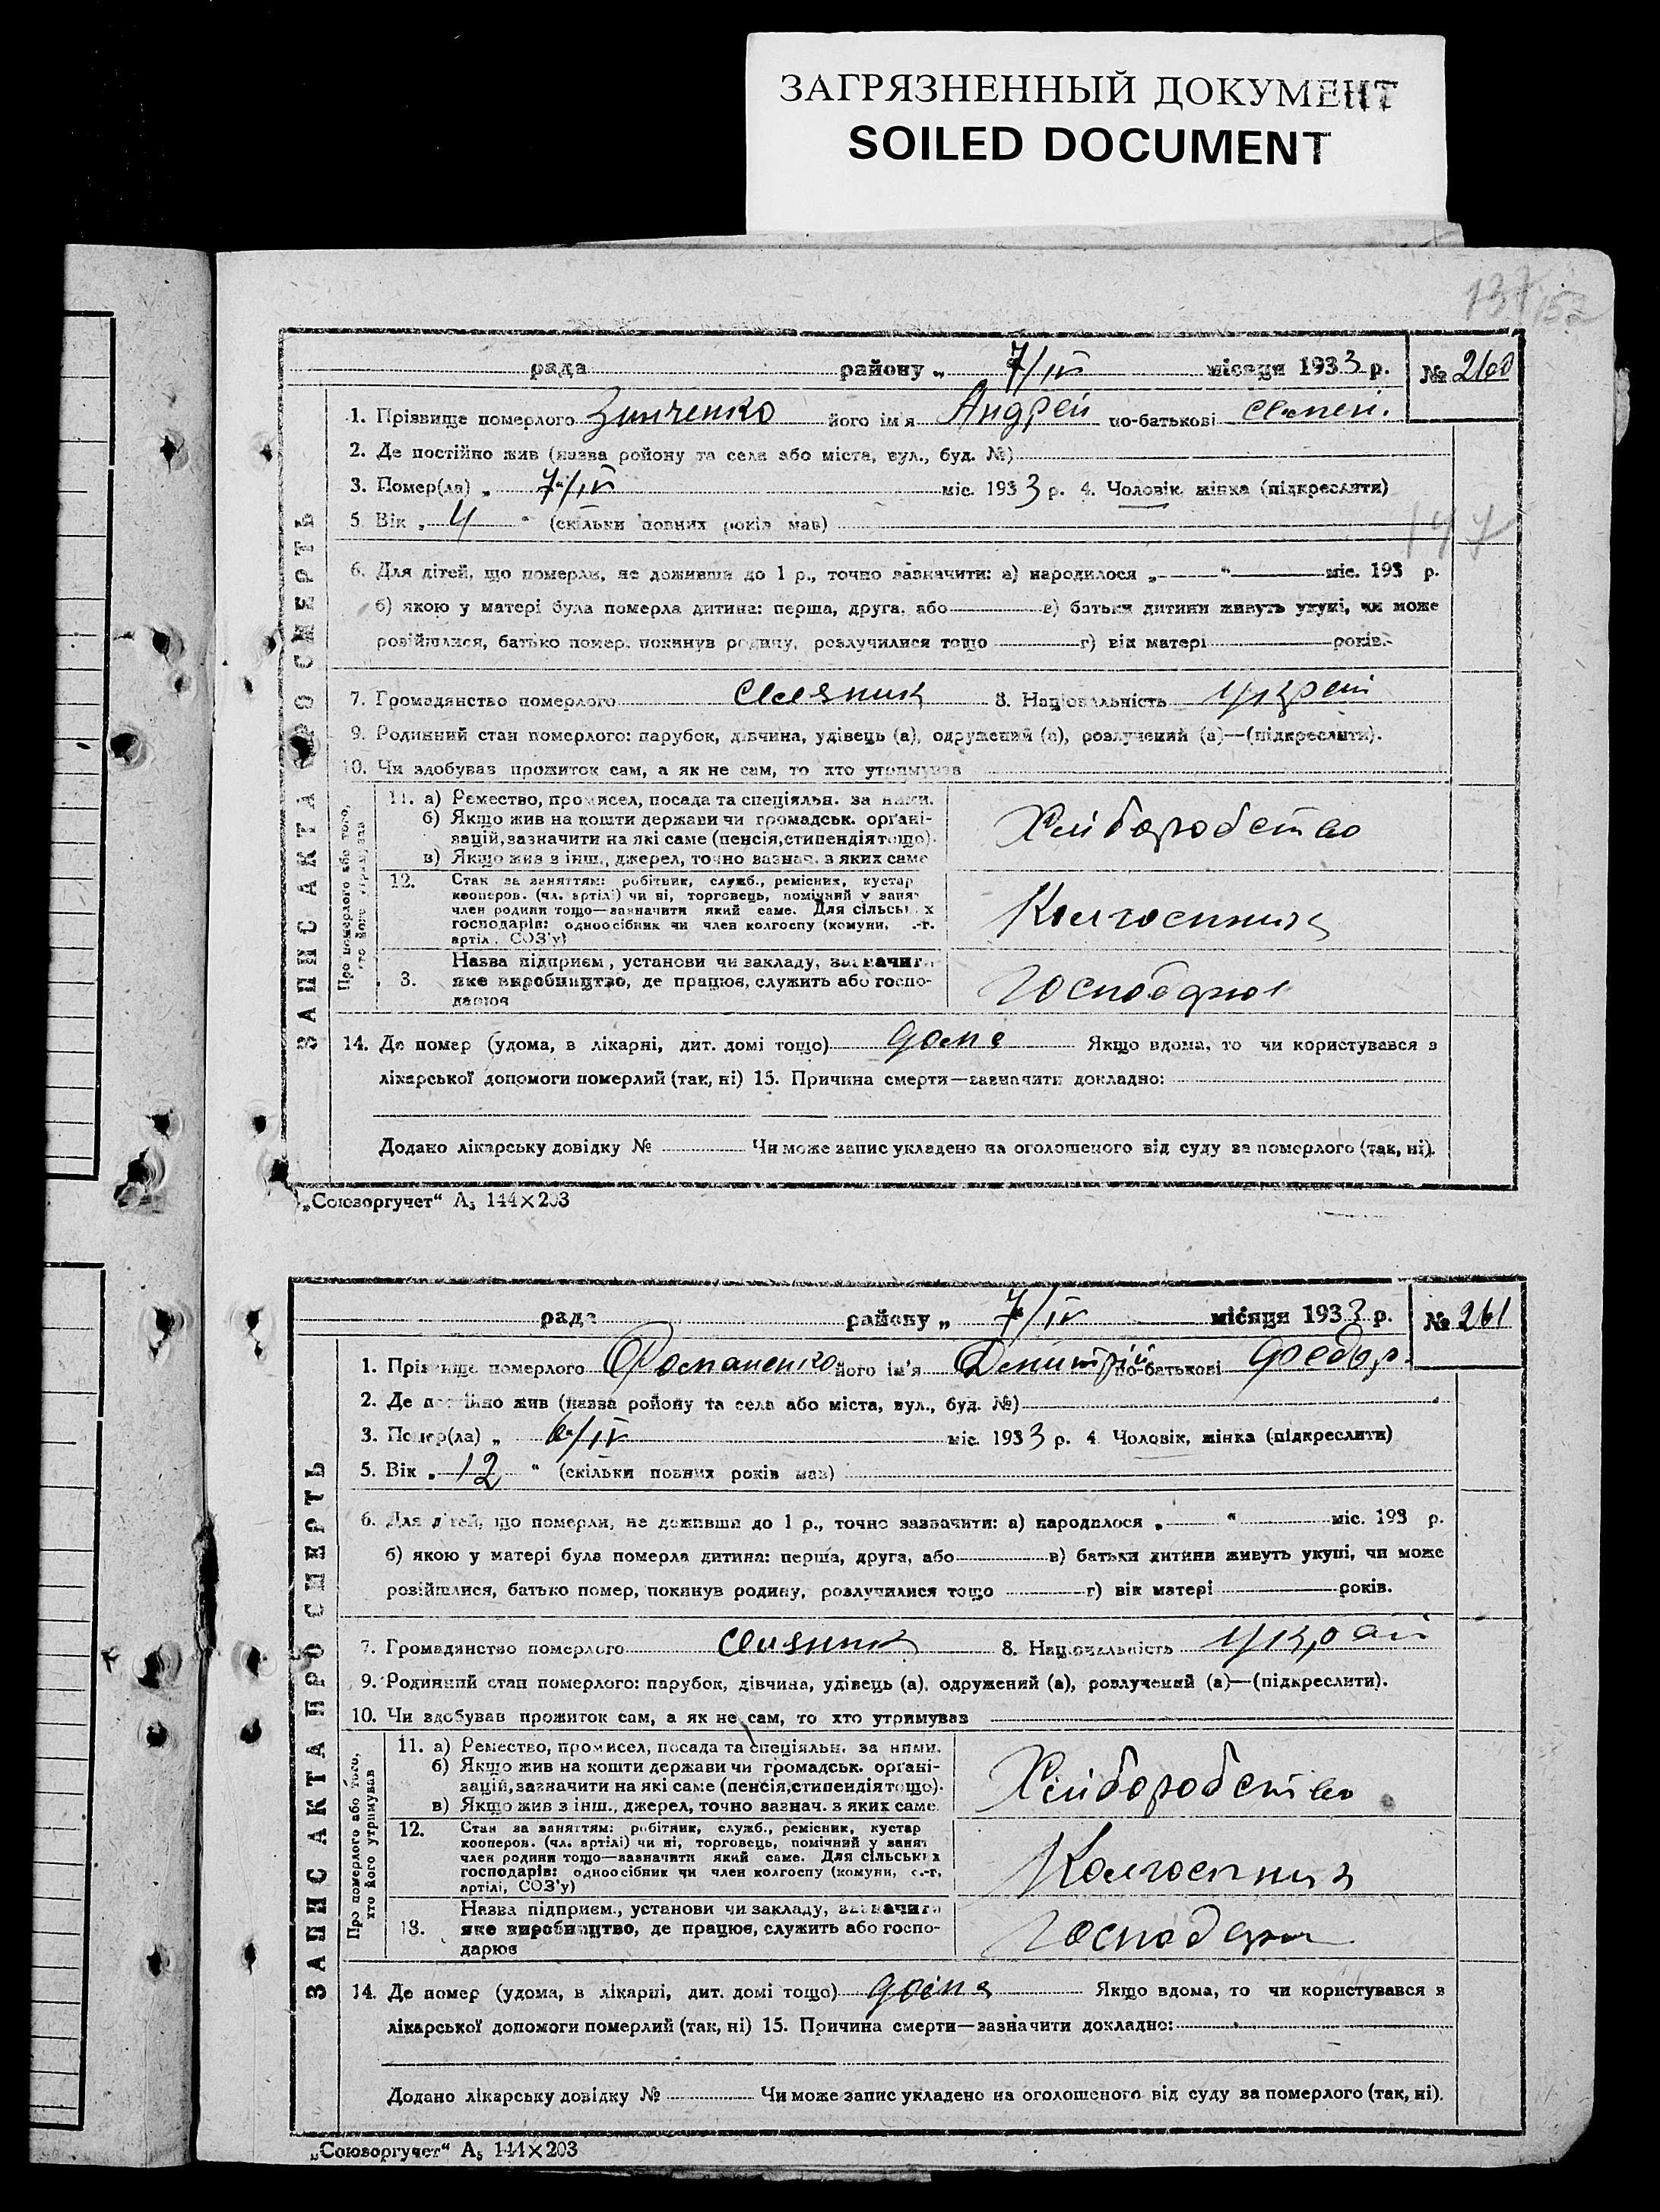 ЗАГРЯЗНЕННЫЙ ДОКУМЕНТ
SOILED DOCUMENT
137
рада району „ 7/IV місяця 1933 р. № 260
1. Прізвище померлого Зинченко його ім'я Андрей по-батькові Семен.
2. Де постійно жив (назва ройону та села або міста, вул., буд. №)
3. Помер(ла) „ 7/IV міс. 1933 р. 4. Чоловік, жінка (підкреслити)
5. Вік „ 4 “ (скільки повних років мав)
147
6. Для дітей, що померли, не доживши до 1 р., точно зазначити: а) народилося „ “ міс. 193 р.
б) якою у матері була померла дитина: перша, друга, або в) батьки дитини живуть укупі, чи може
розійшлися, батько помер, покинув родину, розлучилися тощо г) вік матері років.
7. Громадянство померлого 8. Національність Украї
9. Родинний стан померлого: парубок, дівчина, удівець (а), одружений (а), розлучений (а)—(підкреслити).
10. Чи здобував прожиток сам, а як не сам, то хто утримував
ЗАПИС АКТА ПРО СМЕРТЬ
Про померлого або того, хто його утримував
11. а) Ремество, промисел, посада та спеціяльн. за ними.
б) Якщо жив на кошти держави чи громадськ. органі-
зацій, зазначити на які саме (пенсія, стипендія тощо).
в) Якщо жив з інш., джерел, точно зазнач. з яких саме
Хліборобство
12. Стан за заняттям: робітник, служб., ремісник, кустар
кооперов. (чл. артілі) чи ні, торговець, помічний у занят
член родини тощо—зазначити який саме. Для сільських
господарів: одноосібник чи член колгоспу (комуни, с.-г.
артілі, СОЗ'у)
Колгоспник
13. Назва підприєм., установи чи закладу, зазначити
яке виробництво, де працює, служить або госпо-
дарює
14. Де помер (удома, в лікарні, дит. домі тощо) дома Якщо вдома, то чи користувався з
лікарської допомоги померлий (так, ні) 15. Причина смерти—зазначити докладно:
Додано лікарську довідку № Чи може запис укладено на оголошеного від суду за померлого (так, ні).
„Союзоргучет“ А₅ 144×203
рада району „ 7/IV місяця 1933 р. № 261
1. Прізвище померлого Романенко його ім'я Дмитрій по-батькові Федор.
2. Де постійно жив (назва ройону та села або міста, вул., буд. №)
3. Помер(ла) „ 6/IV міс. 1933 р. 4 Чоловік, жінка (підкреслити)
5. Вік „ 12 “ (скільки повних років мав)
6. Для дітей, що померли, не доживши до 1 р., точно зазначити: а) народилося „ “ міс. 193 р.
б) якою у матері була померла дитина: перша, друга, або в) батьки дитини живуть укупі, чи може
розійшлися, батько помер, покинув родину, розлучилися тощо г) вік матері років.
7. Громадянство померлого 8. Національність Украї
9. Родинний стан померлого: парубок, дівчина, удівець (а), одружений (а), розлучений (а)—(підкреслити).
10. Чи здобував прожиток сам, а як не сам, то хто утримував
ЗАПИС АКТА ПРО СМЕРТЬ
Про померлого або того, хто його утримував
11. а) Ремество, промисел, посада та спеціяльн. за ними.
б) Якщо жив на кошти держави чи громадськ. органі-
зацій, зазначити на які саме (пенсія, стипендія тощо).
в) Якщо жив з інш., джерел, точно зазнач. з яких саме.
Хліборобство
12. Стан за заняттям: робітник, служб., ремісник, кустар
кооперов. (чл. артілі) чи ні, торговець, помічний у занят
член родини тощо—зазначити який саме. Для сільських
господарів: одноосібник чи член колгоспу (комуни, с.-г.
артілі, СОЗ'у)
Колгоспник
13. Назва підприєм., установи чи закладу, зазначити
яке виробництво, де працює, служить або госпо-
дарює
14. Де помер (удома, в лікарні, дит. домі тощо) дома Якщо вдома, то чи користувався з
лікарської допомоги померлий (так, ні) 15. Причина смерти—зазначити докладно:
Додано лікарську довідку № Чи може запис укладено на оголошеного від суду за померлого (так, ні).
„Союзоргучет“ А₅ 144×203